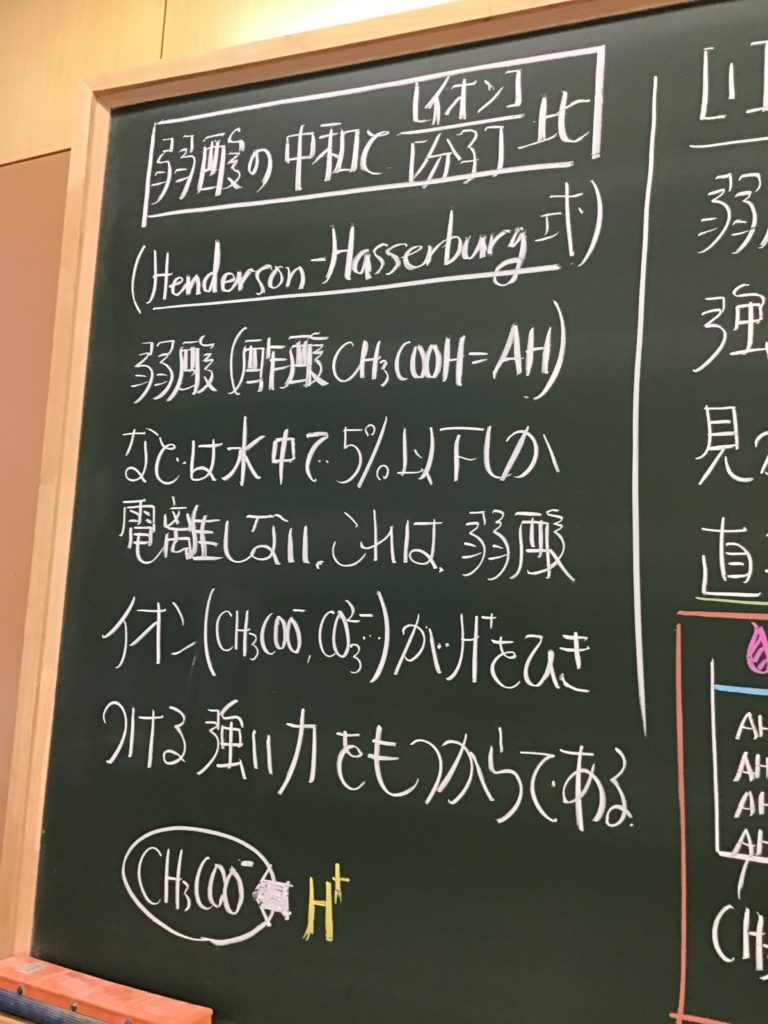 弱酸の中和と[イオン]/[分子]比
(Henderson-Hasserburg式)
弱酸(酢酸CH₃COOH=AH)
などは水中で5%以下しか
電離しない.これは,弱酸
イオン(CH₃COO⁻,CO₃²⁻…)が H⁺をひき
つける強い力をもつからである.
CH₃COO⁻ H⁺
弱
強
見
直
AH
AH
AH
AH
(CH₃